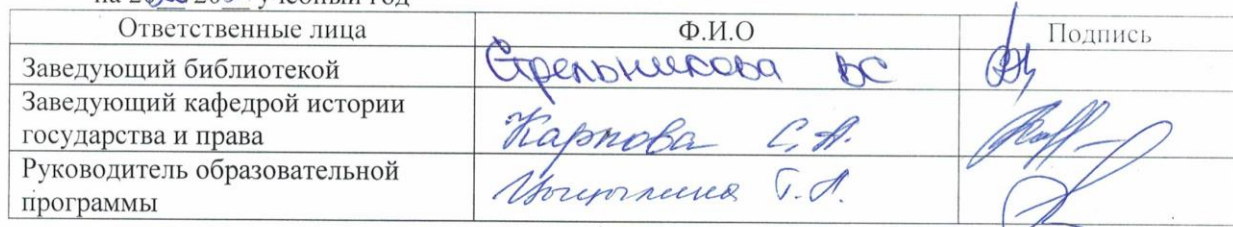 учебный год
Ответственные лица Ф.И.О Подпись
Заведующий библиотекой Стрельникова ВС
Заведующий кафедрой истории
государства и права Карпова С.А.
Руководитель образовательной
программы Т.А.